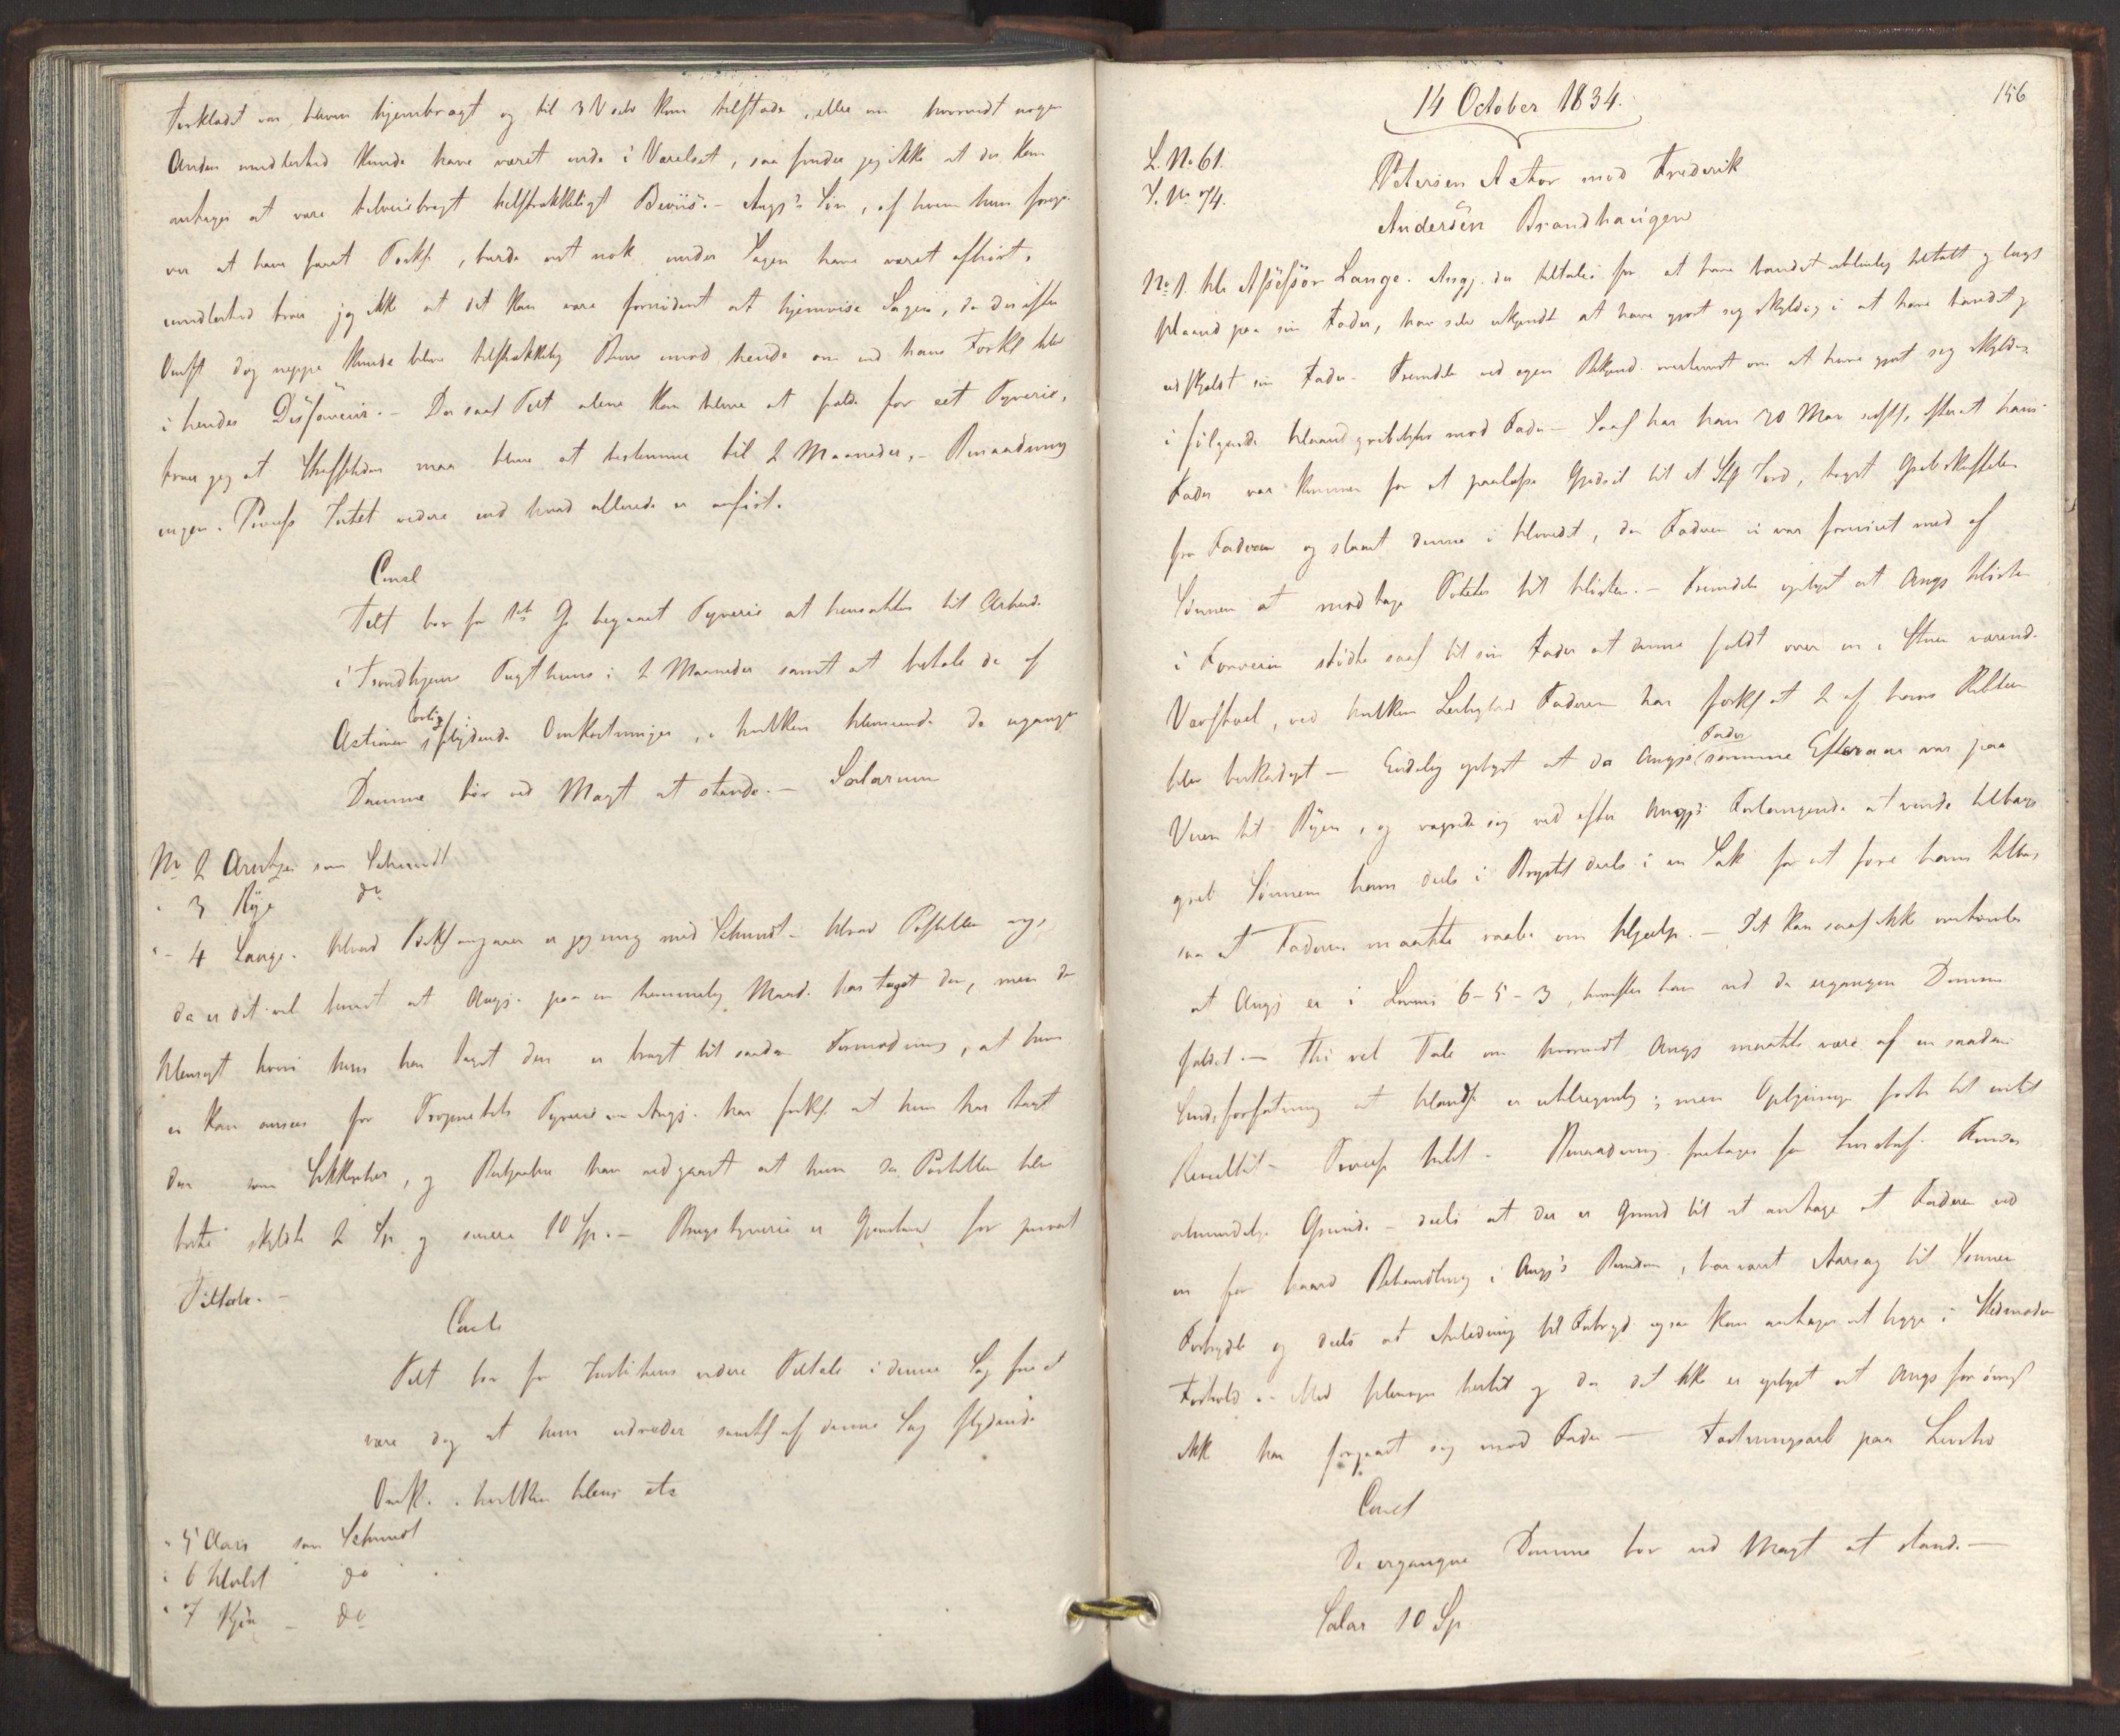 Forklædet var bleven hjembragt og til 3 N selv kom tilstæde, eller om hvorvidt nogen
Anden imidlertid kunde have været inde i Værelset, saa finder jeg ikke at der kan
antages at være tilveiebragt tilstrækkeligt Beviis. Angj's Søn, af hvem hun foregi-
ver at have faaet Forkl, burde vist nok under Sagen have været afhørt,
imidlertid troer jeg ikke at det kan være fornødent at hjemvise Sagen, da derefter
Omst dog neppe kunde blive tilstrækkelig Beviis imod hende om end hans Forkl blev
i hendes Disfaveur. Da saal Tilt alene kan blive at fælde for eet Tyverie,
troer jeg at Straffetiden maa blive at bestemme til 2 Maaneder. Benaadning
ingen. Process Intet videre end hvad allerede er anført.
Concl
Tilt bør for 1ste G. begaaet Tyverie at hensættes til Arbeide
i Trondhjems Tugthuus i 2 Maaneder samt at betale de af
Actionen lovlig flydende Omkostninger, i hvilken Henseende de ergangne
Domme bør ved Magt at stande. Salarium
No 2 Arntzen som Schmidt
" 3 Rye do
" 4 Lange. Hvad Forkl angaaer er jeg enig med Schmidt. Hvad Postillen ang,
da er det vel beviist at Angj. paa en hemmelig Maade har taget den, men da
Hensigt hvori hun har taget den er bragt til saadan Formodning, at hun
ei kan ansees for Propriets Tyverie. Angj. har forkl at hun har taget
den som Sikkerhed, og har vedgaaet at hun da Postillen blev
skyldte 2 Sp og senere 10 Sp. Brugstyverie er Gjenstand for privat
Tiltale.
Concls
Tilt bør for Justitiens videre Tiltale i denne Sag frie at
være dog at hun udreder samtl af denne Sag flydende
Omk. i hvilken Hens etc
" 5 Aars som Schmidt
" 6 Holst do
" 7 do
156
14 October 1834.
L. No 61.
S. No 74.
Petersen Actor mod Frederik
Andersen Brandhaugen
No 1. Hr Assessor Lange. Angj. der tiltales for at have bandet utilbørlig tiltalt og lagt
Haand paa sin Fader, har selv erkjendt at have gjort sig skyldig i at have bandet og
udskjeldt sin Fader. Fremdeles ved egen Bekjend. overbeviist om at have gjort sig skyldig
i følgende Haandgribeligheder mod Fader. Saal har han 20 Mar sidstl, efterat hans
Fader var kommen for at paalæsse Gjødsel til et Stk Jord, taget Grebskaftet
fra Faderen og slaaet denne i Hovedet, da Faderen ei var fornøiet med af
Sønnen at modtage Poteter til Heste. Fremdeles oplyst at Angj
i Forveien stødte saal til sin Fader at denne faldt over en i Stuen værende
Vævstoel, ved hvilken Leilighed Faderen har forkl at 2 af hans Ribben
blev beskadiget — Endelig oplyst at da Angjs Fader samme Efteraar var paa
Veien til Byen, og vægrede sig ved efter Angjs Forlangende at vende tilbage
greb Sønnen ham deels i Brystet deels i en Sæk for at føre ham tilbage
saa at Faderen maatte raabe om Hjælp. — Det kan saal ikke omtvivles
at Angj er i Lovens 6-5-3, hvorefter han ved de ergangne Domme
fældet. — Thi vel Tale om hvorvidt Angj maatte være af en saadan
Sindsforfatning at Handl er utilregnelig; men Oplysninger førte til intet
Resultat. Process Intet. Benaadning foretages for Livsstraf. Foruden
almindelige Grunde deels at der er Grund til at antage at Faderen ved
en for haard Behandling i Angj's Barndom, har været Aarsag til Sønnens
Forbrydelse og deels at Anledning til Forbryd ogsaa kan antages at ligge i Stedmoder
Forhold. Med Hensyn hertil og da det ikke er oplyst at Angj forøvrigt
ikke har forgaaet sig mod Fader — Fæstningsarb paa Livstid
Concl
De ergangne Domme bør ved Magt at stande. —
Salar 10 Sp